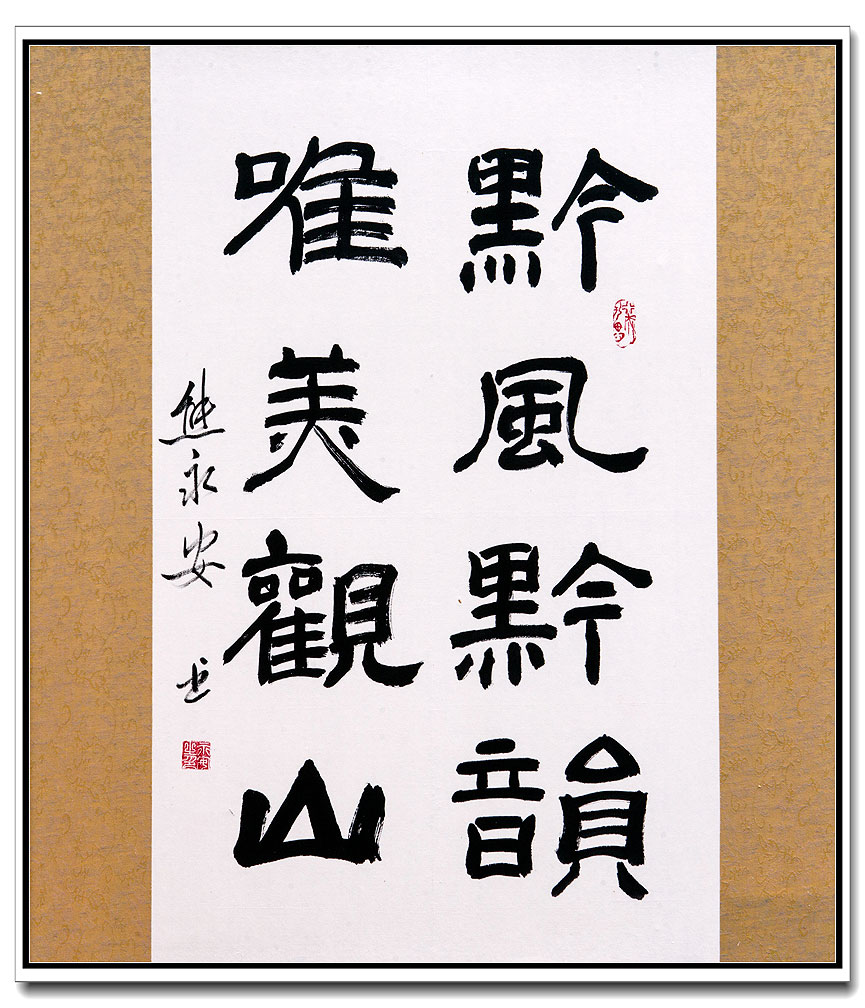 黔風黔韻
唯美觀山
熊永安 书